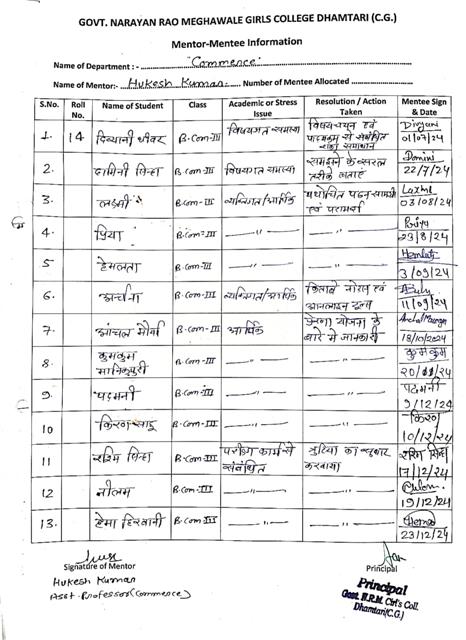 GOVT. NARAYAN RAO MEGHAWALE GIRLS COLLEGE DHAMTARI (C.G.)
Mentor-Mentee Information
Name of Department : - "Commence"
Name of Mentor:- Hukesh Kumar Number of Mentee Allocated
S.No. Roll No. Name of Student Class Academic or Stress Issue Resolution / Action Taken Mentee Sign & Date
1. 14 दिव्यानी धीवर B.Com-III विषयगत समस्या विषयचयन एवं पाठ्यक्रम से संबंधित शंका समाधान Divyani 01/07/24
2. दामिनी सिन्हा B.Com-III विषयगत समस्या समझाने के सरल तरीके बताए Damini 22/7/24
3. लक्ष्मी B.Com-III व्यक्तिगत/आर्थिक यथोचित पठन सामग्री एवं परामर्श Laxmi 03/08/24
4. प्रिया B.Com-III —"— —"— Priya 23/8/24
5 हेमलता B.Com-III —"— —"— Hemlata 3/09/24
6. अर्चना B.Com-III व्यक्तिगत/आर्थिक किताबें नोट्स एवं आनलाइन 11/09/24
7. आंचल मौर्या B.Com-III आर्थिक योजना के बारे में जानकारी Anchal Maurya 18/10/2024
8. कुमकुम मानिकपुरी B.Com-III —"— —"— कुमकुम 20/11/24
9. पद्मनी B.Com-III —"— —"— पद्मनी 9/12/24
10 किरण साहू B.Com-III —"— —"— किरण 10/12/24
11 रश्मि सिन्हा B.Com-III कार्य से संबंधित त्रुटियों का सुधार करवाया रश्मि सिन्हा 17/12/24
12 नीलम B.Com-III —"— —"— 19/12/24
13. हेमा हिरवानी B.Com III —"— —"— Hema 23/12/24
Signature of Mentor
Hukesh Kumar
Asst. Professor (Commerce)
Principal
Principal
Govt. N.R.M. Girl's Coll.
Dhamtari (C.G.)